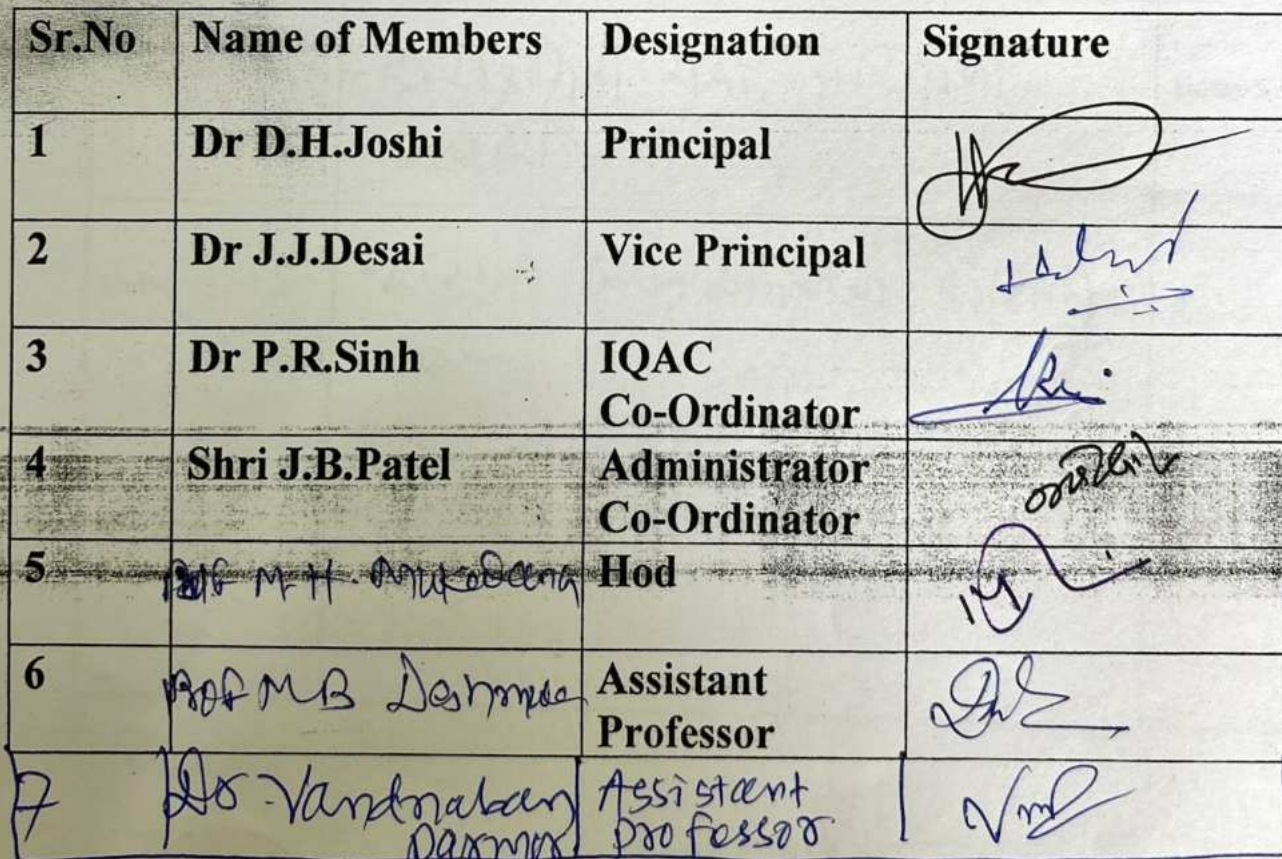 Sr.No Name of Members Designation Signature
1 Dr D.H.Joshi Principal
2 Dr J.J.Desai Vice Principal
3 Dr P.R.Sinh IQAC
Co-Ordinator
4 Shri J.B.Patel Administrator
Co-Ordinator
5 Prof M.H. Hod
6 Prof M B Assistant
Professor
7 Dr. Vandnaben Assistant
Parmar professor